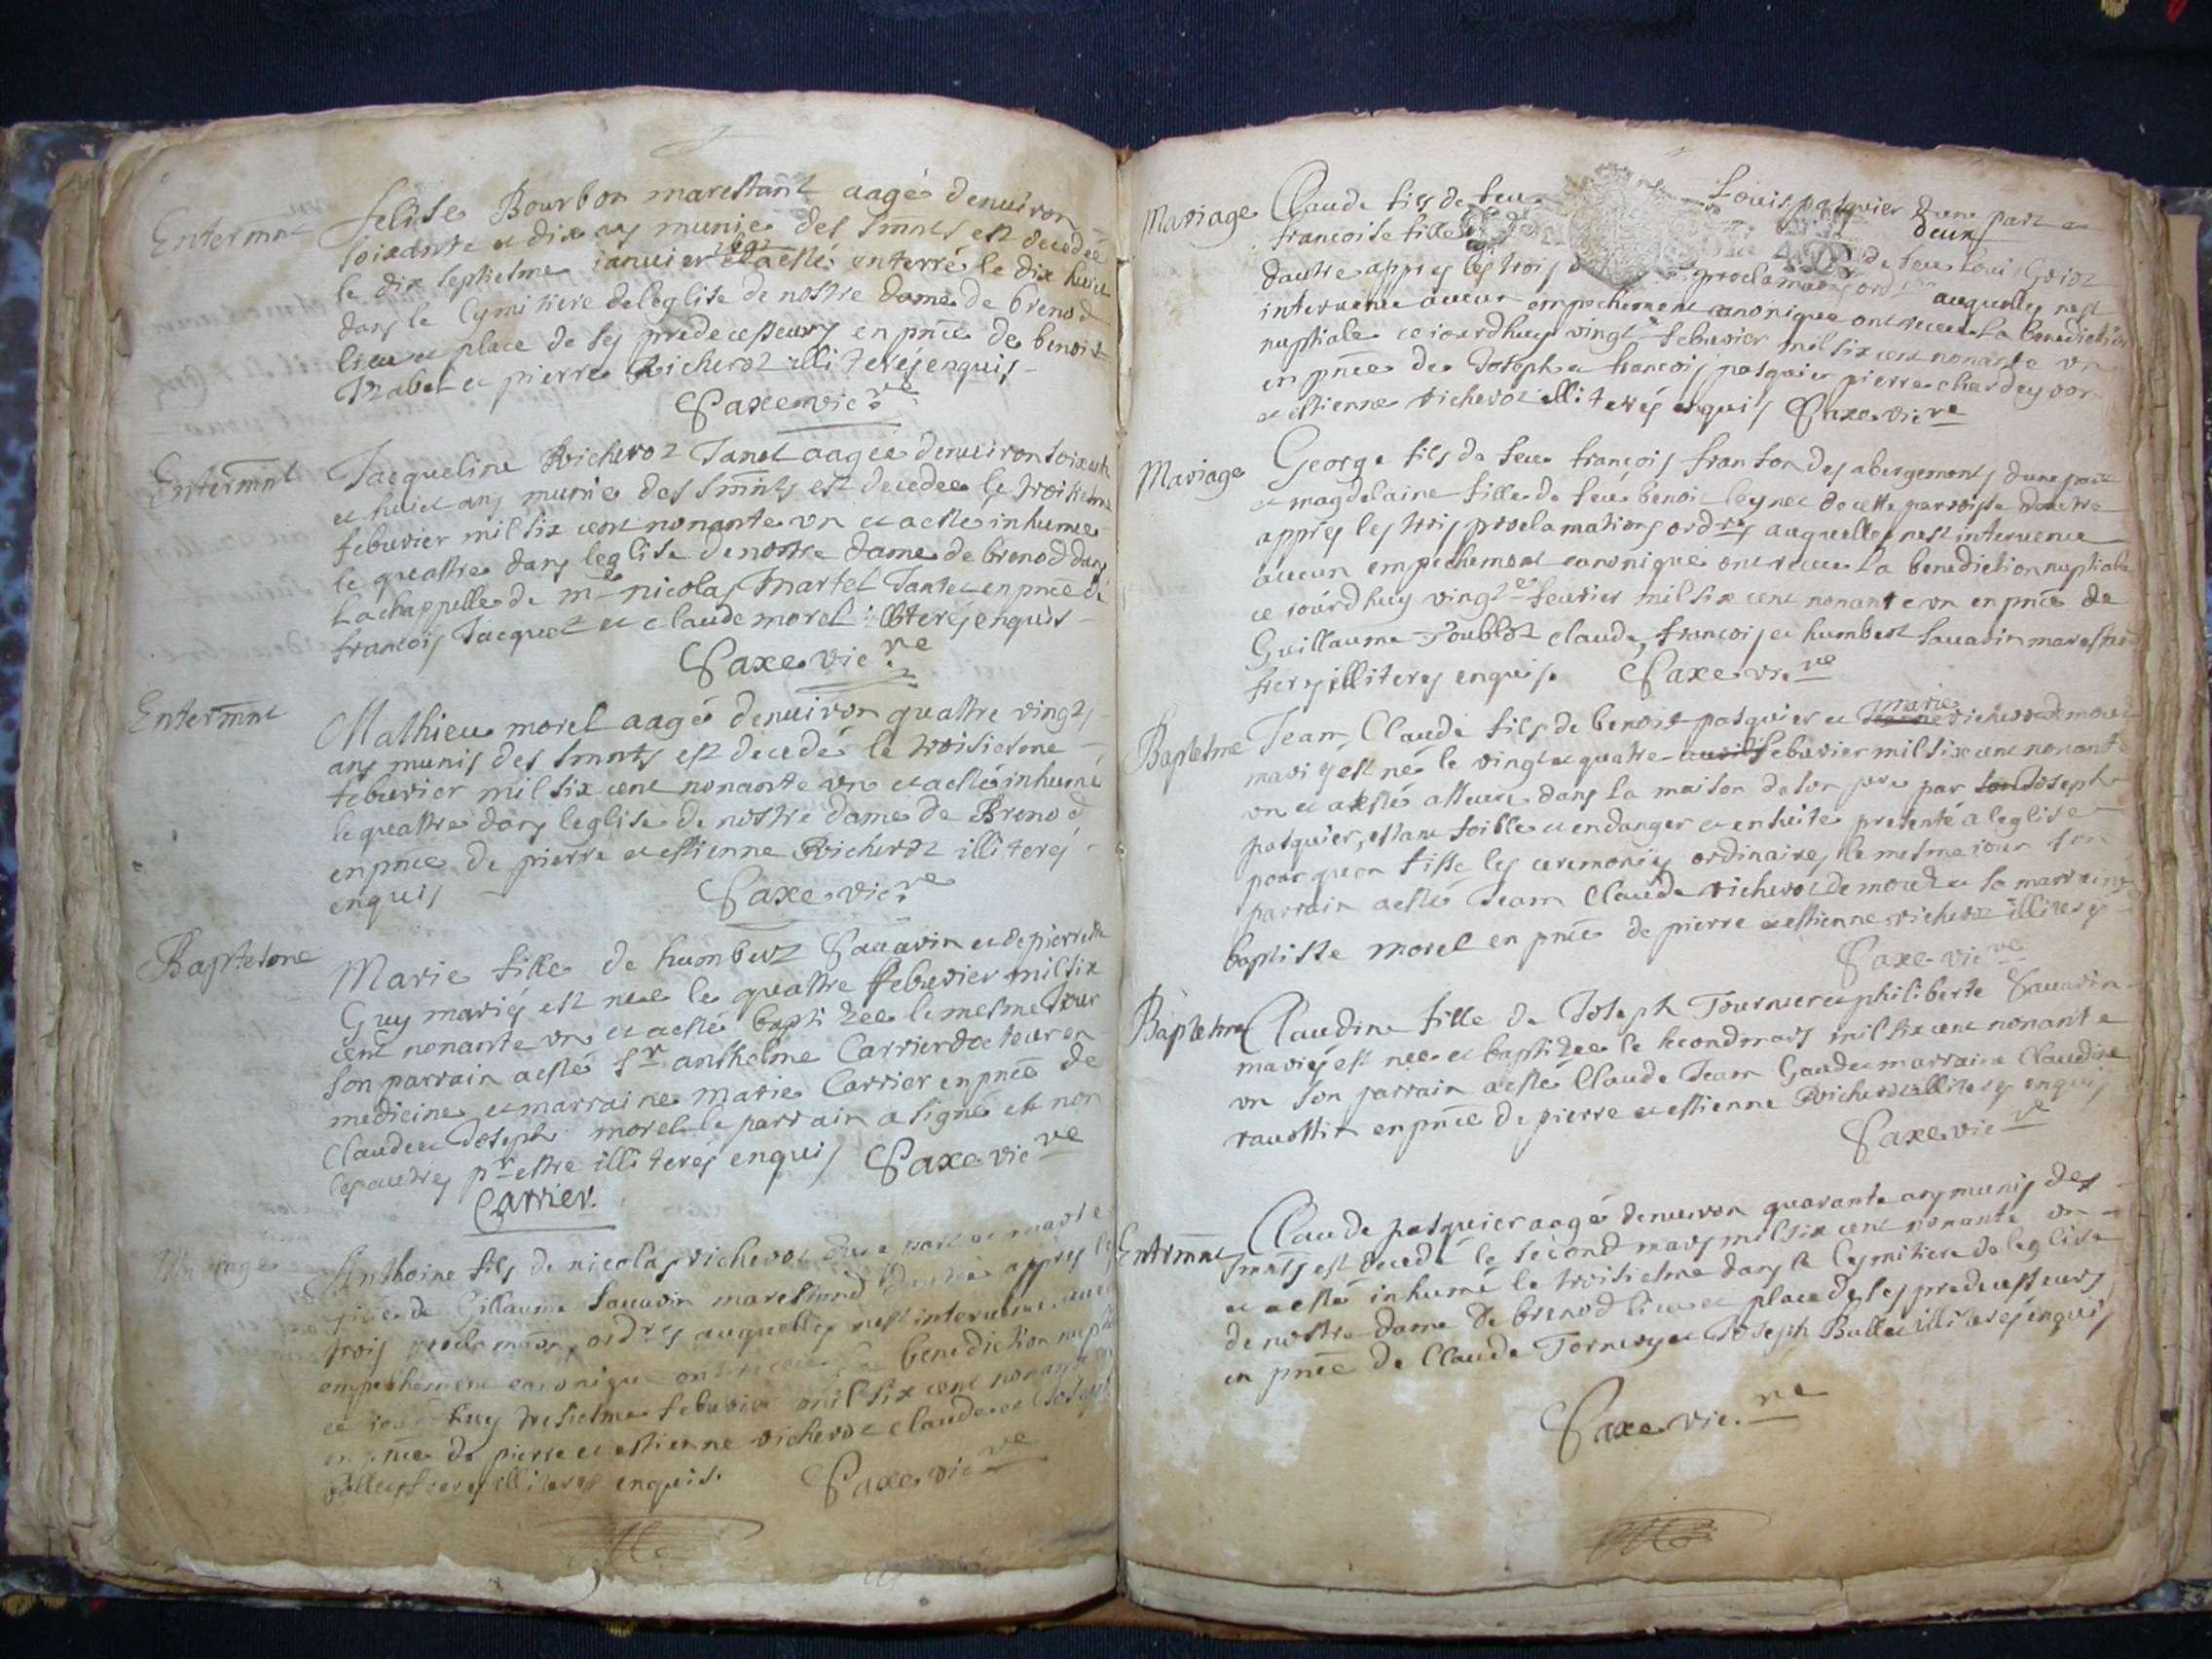 Entermnt
felise Bourbon mareschant aagée denuiron
soixante et dix ans munie des smnts est decedée
le dix septiesme ianuier 1691 et a esté enterré le dix huict
dans le Cymitiere de leglise de nostre dame de brenod
lieu et place de ses predecesseurs en pnce de benoit
et pierre Richerot illiterés enquis
Saxe vicre
Entermnt
Jacqueline Richerot Tanet aagée denuiron soixante
et huict ans munie des Smnts est decedee le troisiesme
febuvier mil six cent nonante vn et a esté inhumée
le quattre dans leglise de nostre dame de brenod dans
La chappelle de mre nicolas Martel Tantet en pnce de
francois Jacquet et claude morel illiterés enquis
Saxe vicre
Entermnt
Mathieu morel aagé denuiron quattre vingts
ans munis des smnts est decedé le troisiesme
febuvier mil six cent nonante vn et a esté inhumé
le quattre dans leglise de nostre dame de Brenod
en pnce de pierre et estienne Richerot illiterés
enquis
Saxe vicre
Baptesme
Marie fille de humbert Sauarin et de pierrette
Guy mariés est nee le quattre febuvier mil six
cent nonante vn et a esté baptizee le mesme Jour
son parrain a esté Sr anthelme Carrier docteur en
medicine et marraine marie Carrier en pnce de
Claude et Joseph morel le parrain a signé et non
les autres pr estre illiterés enquis Saxe vicre
Carrier.
Mariage
Anthoine fils de nicolas richerot dune part et marie
fille de Gillaume Sauarin mareschand dautre appres les
trois proclamaons ordres auquelles nest interuenu aucun
empechement canonique ont receu la benediction nuptiale
ce iourdhuy treisiesme febuvier mil six cent nonante vn
en pnce de pierre et estienne richerot claude et Joseph
illiterés enquis. Saxe vicre
Mariage
Claude fils de feu Louis pasquier dune part et
francoise fille de feu Louis Goiot deux
dautre appres les trois proclamaons ordres auquelles nest
interuenu aucun empechement canonique ont receu La benediction
nuptiale ce iourdhuy vingt febuvier mil six cent nonante vn
en pnce de Joseph et francois pasquier pierre chardeyron
et estienne richerot illiterés enquis Saxe vicre
Mariage
George fils de feu francois franton des abergements dune part
et magdelaine fille de feu benoit leynet de cette parroisse dautre
appres les trois proclamations ordres auquelles nest interuenue
aucun empechement canonique ont receu La benediction nuptiale
ce iourdhuy vingt feuvrier mil six cent nonante vn en pnce de
Guillaume claude, francois et humbert Sauarin mareschands
freres illiteres enquis. Saxe vicre
Baptesme
Jean Claude fils de benoit pasquier et marie richerot de mouet
mariés est né le vingt et quatre auril febuvier mil six cent nonante
vn et a esté dans la maison de son pere par son Joseph
pasquier, estant foible et en danger et ensuite presenté a leglise
pour qu on fisse les ceremonies ordinaires le mesme iour son
parrain a esté Jean Claude richerot de mouet et sa marraine
baptiste morel en pnce de pierre et estienne richerot illiterés
Saxe vicre
Baptesme
Claudine fille de Joseph Tournier et philiberte Sauarin
mariés est nee et baptizee le second mars mil six cent nonante
vn son parrain a esté Claude Jean Gaudet marraine Claudine
rauottin en pnce de pierre et estienne Richerot illiterés enquis
Saxe vicre
Entermnt
Claude pasquier aagé denuiron quarante ans munis des
smnts est decedé le second mars mil six cent nonante vn
et a esté inhumé le troisiesme dans le Cymitiere de leglise
de nostre dame de brenod lieu et place de ses predecesseurs
en pnce de Claude Tornery et Joseph Ballet illiterés enquis
Saxe vicre